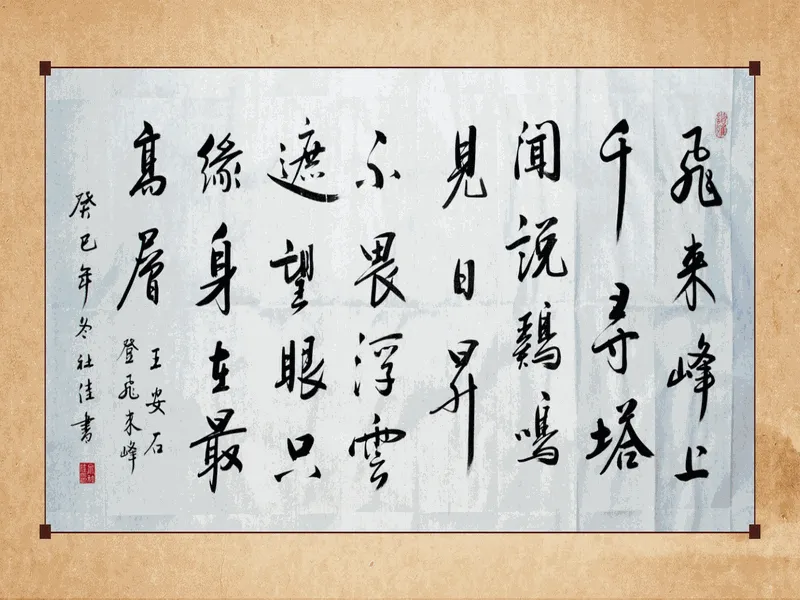 飛来峰上
千尋塔
聞説鷄鳴
見日昇
不畏浮雲
遮望眼只
縁身在最
髙層
王安石
登飛来峰
癸巳年冬社佳書